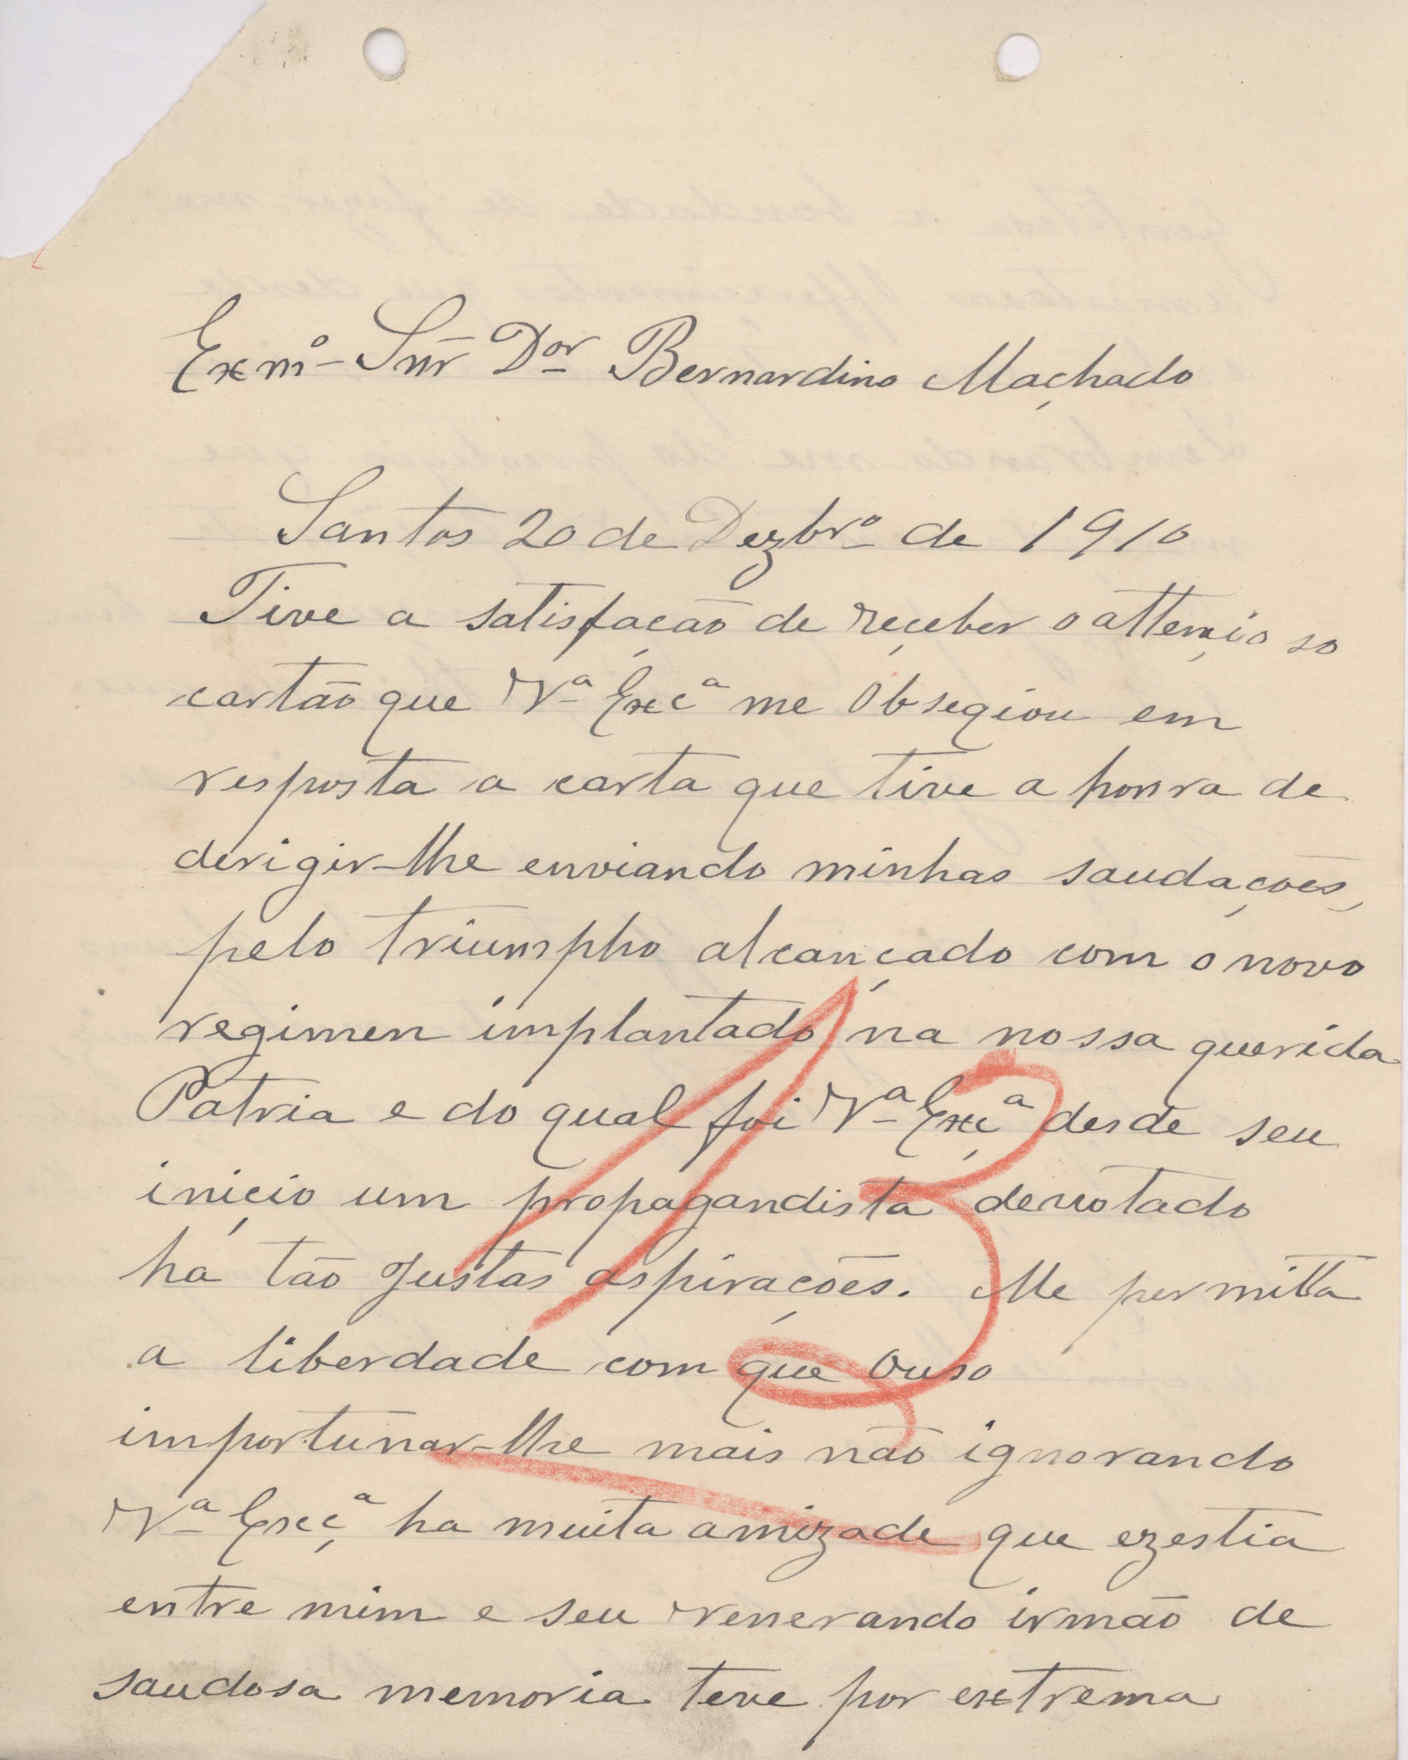 Exmº Snr Dor Bernardino Maçhado
Santos 20 de Dezbrº de 1910
Tive a satisfação de reçeber o attençio so
cartão que Vª Excª me Obseqiou em
resposta a carta que tive a honra de
derigir-lhe enviando minhas saudações,
pelo triumpho alcançado com o novo
regimen implantado na nossa querida
Patria e do qual foi Vª Exçª desde seu
iniçio um propagandista devotado
ha tão Justas aspirações. Me permitta
a liberdade com que Ouso
importunar-lhe mais não ignorando
Vª Exçª ha muita amizade que ezestia
entre mim e seu venerando irmão de
saudosa memoria teve por extrema
13